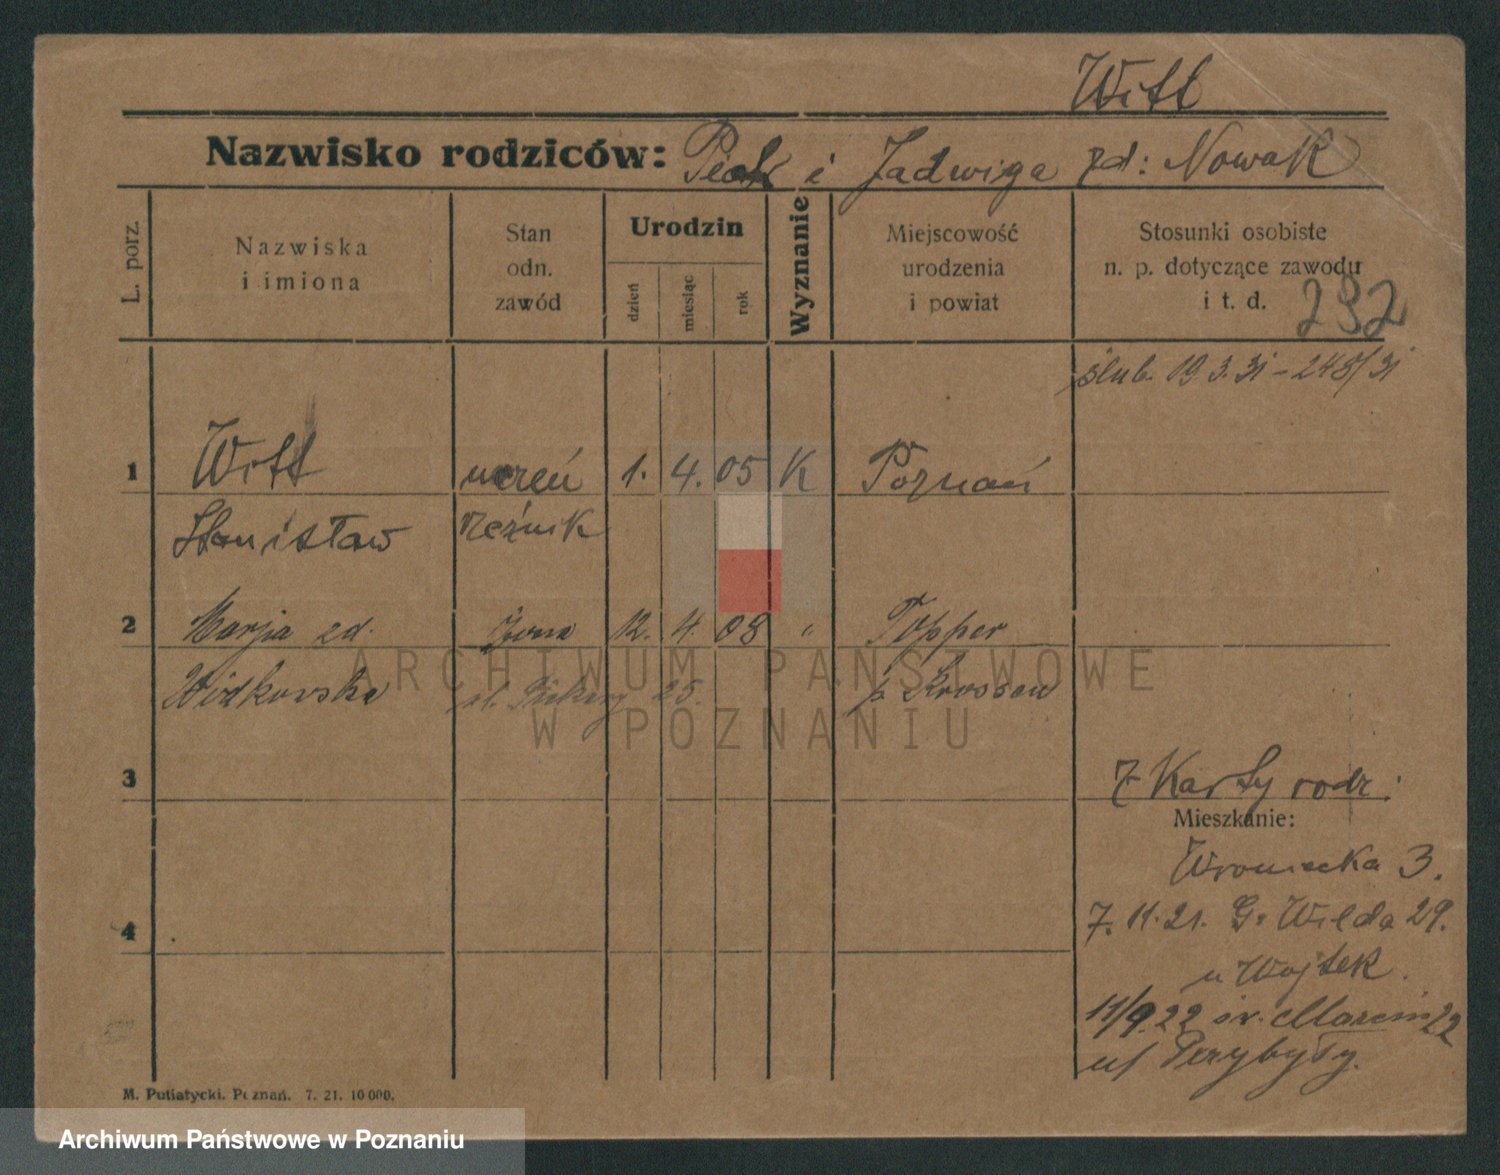 Witt
Nazwisko rodziców: Piotr i Jadwiga zd: Nowak
L. porz.
Nazwiska
i imiona
Stan
odn.
zawód
Urodzin
dzień
miesiąc
rok
Wyznanie
Miejscowość
urodzenia
i powiat
Stosunki osobiste
n. p. dotyczące zawodu
i t. d.
232
ślub. 19 3. 31 - 248/31
1 Witt uczeń 1. 4. 05 K Poznań
Stanisław rzeźnik
2 Marja zd. żona 12. 4. 08 " Topper
Widkowska 25. p. Krossen
3
Z Karty rodz.
Mieszkanie:
Wroniecka 3.
4
7. 11. 21. G. Wilda 29.
u Wojtek.
11/9. 22 św. Marcin 22
u/ Przybyły.
M. Putiatycki. Poznań. 7. 21. 10 000.
ARCHIWUM PAŃSTWOWE
W POZNANIU
Archiwum Państwowe w Poznaniu